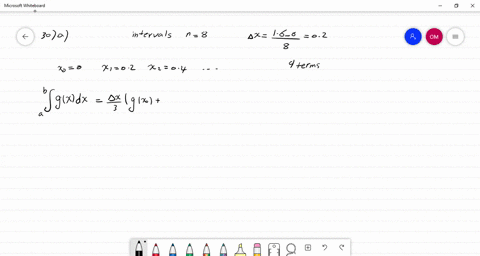 Microsoft Whiteboard
30)a) intervals n=8 Δx = 1.6-0/8 = 0.2
x₀=0 x₁=0.2 x₂=0.4 ...
9 terms
∫ₐᵇ g(x)dx = Δx/3 (g(x₀) +
OM